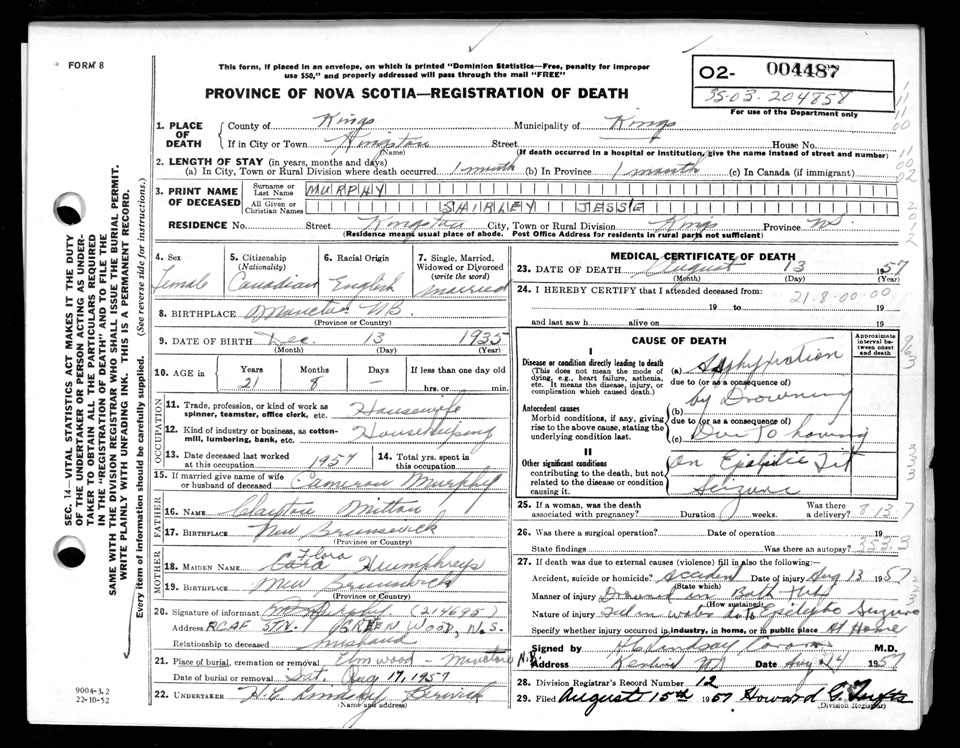 FORM 8
This form, if placed in an envelope, on which is printed "Dominion Statistics—Free, penalty for improper
use $50," and properly addressed will pass through the mail "FREE"
PROVINCE OF NOVA SCOTIA—REGISTRATION OF DEATH
02- 004487
35-03-204858
For use of the Department only
1. PLACE OF DEATH
County of Kings Municipality of Kings
If in City or Town Kingston Street House No.
(Name) (If death occurred in a hospital or institution, give the name instead of street and number)
2. LENGTH OF STAY (in years, months and days)
(a) In City, Town or Rural Division where death occurred 1 month (b) In Province 1 month (c) In Canada (if immigrant)
3. PRINT NAME OF DECEASED
Surname or Last Name MURPHY
All Given or Christian Names SHIRLEY JESSE
RESIDENCE No. Street Kingston City, Town or Rural Division Kings Province NS.
(Residence means usual place of abode. Post Office Address for residents in rural parts not sufficient)
4. Sex Female
5. Citizenship (Nationality) Canadian
6. Racial Origin English
7. Single, Married, Widowed or Divorced (write the word) married
8. BIRTHPLACE Moncton NB.
(Province or Country)
9. DATE OF BIRTH Dec. 13 1935
(Month) (Day) (Year)
10. AGE in Years 21 Months 8 Days — If less than one day old hrs. or min.
OCCUPATION
11. Trade, profession, or kind of work as spinner, teamster, office clerk, etc. Housewife
12. Kind of industry or business, as cotton-mill, lumbering, bank, etc. Housekeeping
13. Date deceased last worked at this occupation 1957
14. Total yrs. spent in this occupation
15. If married give name of wife or husband of deceased Cameron Murphy
FATHER
16. Name Clayton Mitton
17. Birthplace New Brunswick
(Province or Country)
MOTHER
18. MAIDEN NAME Flora Humphreys
19. BIRTHPLACE New Brunswick
(Province or Country)
20. Signature of informant Murphy (214695)
Address RCAF STN. GREENWOOD, N.S.
Relationship to deceased husband
21. Place of burial, cremation or removal Elmwood - Moncton N.B.
Date of burial or removal Sat. Aug 17, 1957
22. UNDERTAKER Berwick
(Name and address)
MEDICAL CERTIFICATE OF DEATH
23. DATE OF DEATH August 13 1957
(Month) (Day) (Year)
24. I HEREBY CERTIFY that I attended deceased from:
21-8-00-00
19 to 19
and last saw h alive on 19
CAUSE OF DEATH
Approximate interval between onset and death
I
Disease or condition directly leading to death
(This does not mean the mode of dying, e.g., heart failure, asthenia, etc. It means the disease, injury, or complication which caused death.)
(a) Asphyxiation
due to (or as a consequence of)
by Drowning
Antecedent causes
Morbid conditions, if any, giving rise to the above cause, stating the underlying condition last.
(b)
due to (or as a consequence of)
(c) Due to having
II
Other significant conditions
contributing to the death, but not related to the disease or condition causing it.
an Epileptic Fit
Seizure
25. If a woman, was the death associated with pregnancy? Duration weeks. Was there a delivery?
26. Was there a surgical operation? Date of operation 19
State findings Was there an autopsy?
353.3
27. If death was due to external causes (violence) fill in also the following:
Accident, suicide or homicide? accident Date of injury Aug 13 1957
(State which)
Manner of injury Drowned in Bath Tub
(How sustained)
Nature of injury water due to Epileptic Seizure
Specify whether injury occurred in industry, in home, or in public place At Home
Signed by M.D.
Address Date Aug 14 1957
28. Division Registrar's Record Number 12
29. Filed August 15th 1957 Howard G.
(Division Registrar)
SEC. 14—VITAL STATISTICS ACT MAKES IT THE DUTY
OF THE UNDERTAKER OR PERSON ACTING AS UNDER-
TAKER TO OBTAIN ALL THE PARTICULARS REQUIRED
IN THE "REGISTRATION OF DEATH" AND TO FILE THE
SAME WITH THE DIVISION REGISTRAR WHO SHALL ISSUE THE BURIAL PERMIT.
WRITE PLAINLY WITH UNFADING INK. THIS IS A PERMANENT RECORD.
Every item of information should be carefully supplied. (See reverse side for instructions.)
9004-3.2
22-10-52